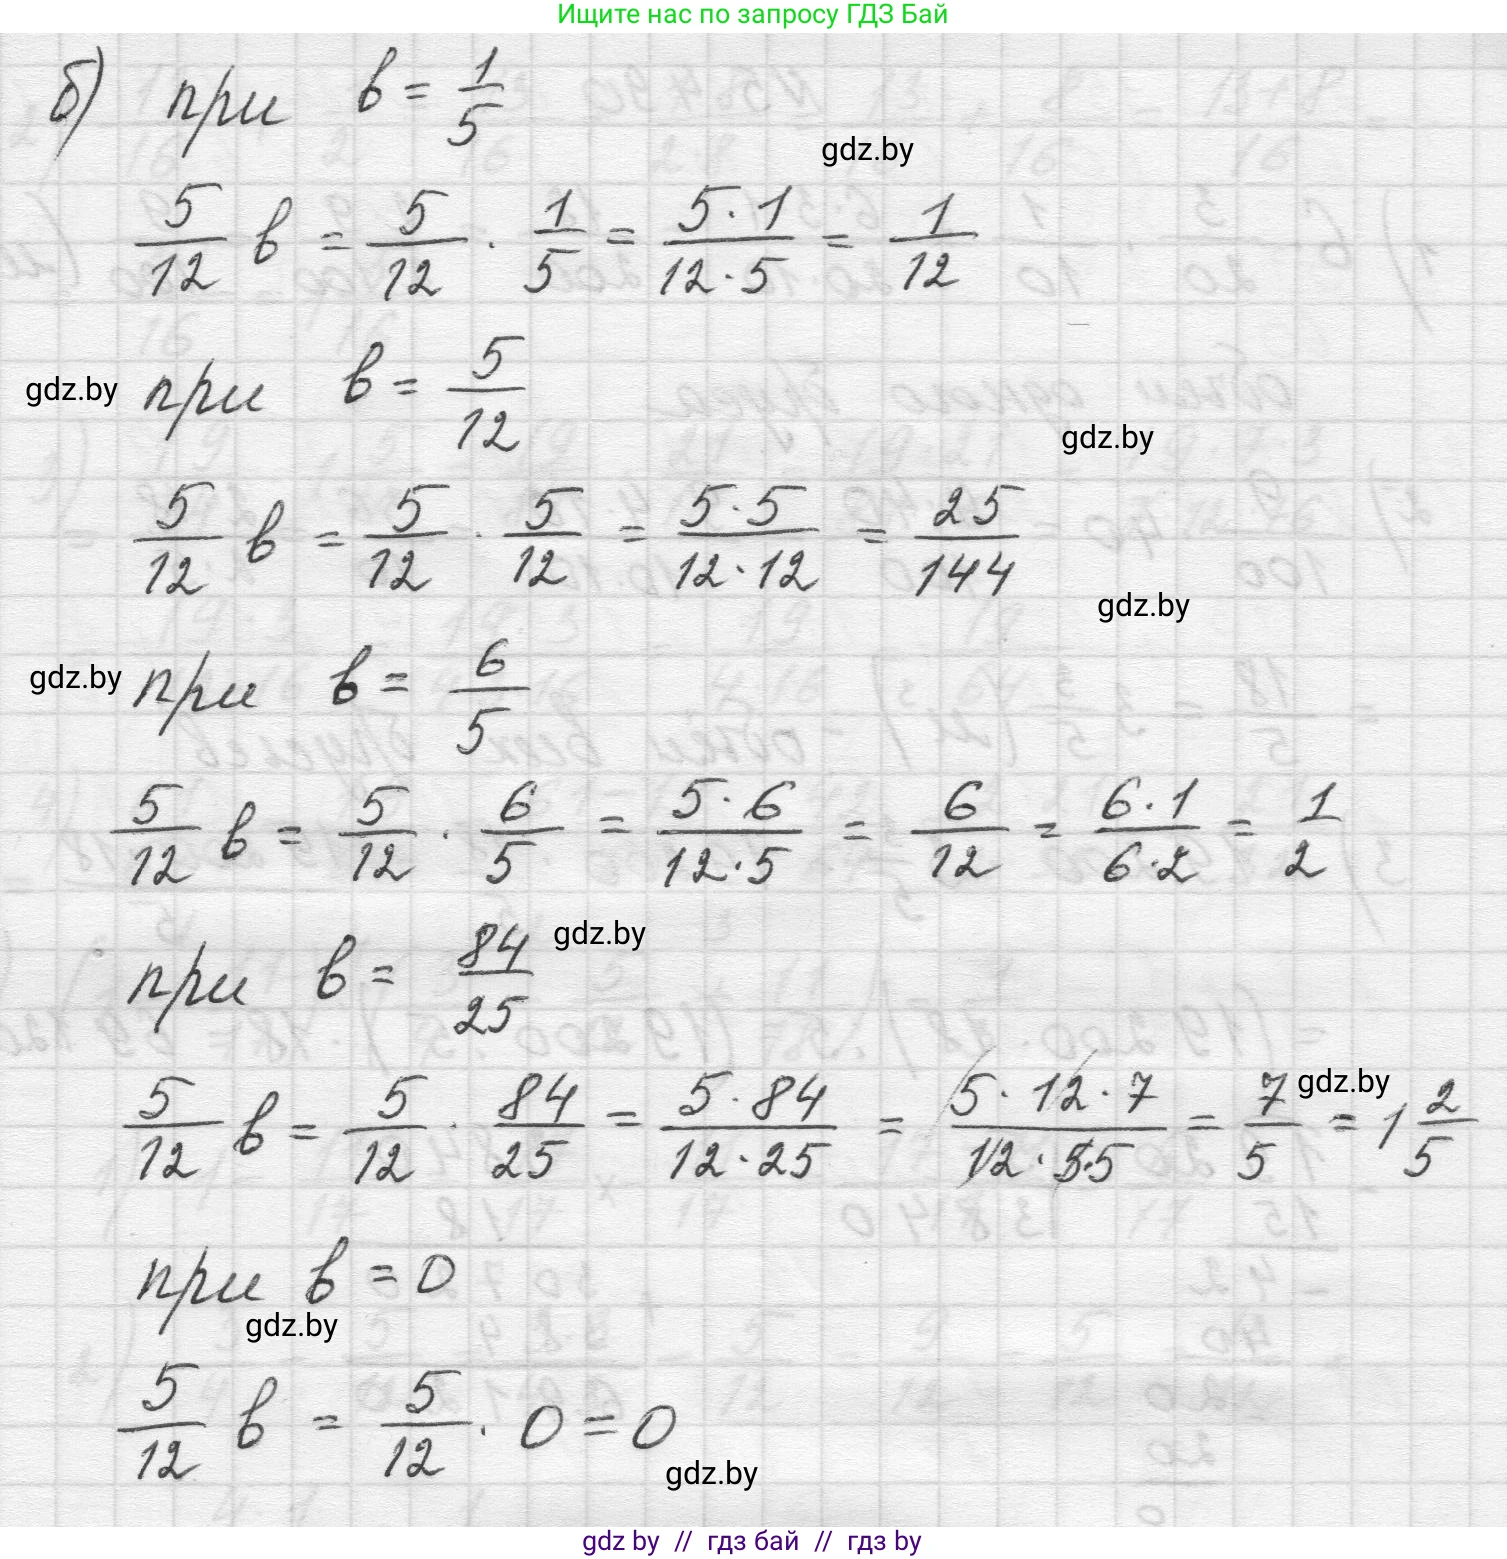 Ищите нас по запросу ГДЗ Бай
б) при в = 1/5
gdz.by
5/12 в = 5/12 · 1/5 = 5·1/12·5 = 1/12
gdz.by при в = 5/12
gdz.by
5/12 в = 5/12 · 5/12 = 5·5/12·12 = 25/144
gdz.by
gdz.by при в = 6/5
5/12 в = 5/12 · 6/5 = 5·6/12·5 = 6/12 = 6·1/6·2 = 1/2
при в = 84/25 gdz.by
5/12 в = 5/12 · 84/25 = 5·84/12·25 = 5·12·7/12·5·5 = 7/5 = 1 2/5
gdz.by
при в = 0
gdz.by
5/12 в = 5/12 · 0 = 0
gdz.by
gdz by // гдз бай // gdz by